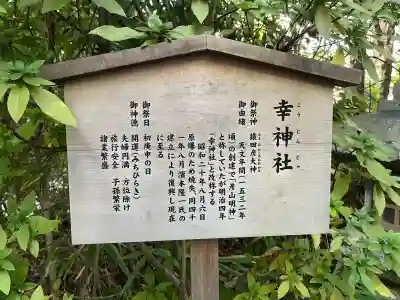 幸神社
こうじんじゃ
御祭神 猿田彦大神
御由緒 天文年間(一五三二年
頃)の創建で「彦山明神」
と称していたが明治四年
「幸神社」と改称する
昭和二十年八月六日
原爆のため焼失、同四十
一年八月濱本隆一氏の
建立により復興し現在
に至る
御祭日 初庚申の日
御神徳 開運(みちひらき)
夫婦円満 方位除け
旅行安全 子孫繁栄
諸業繁盛